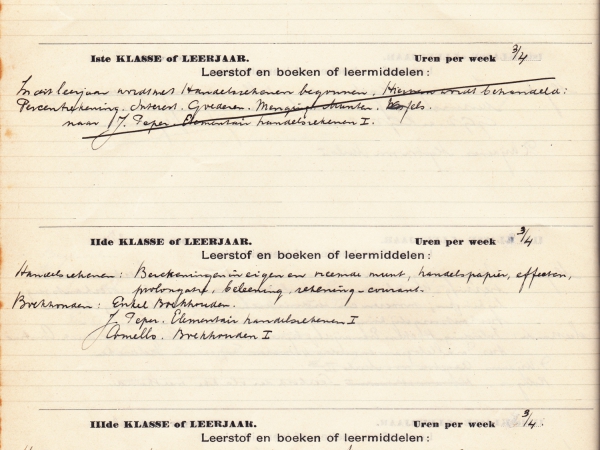 Iste KLASSE of LEERJAAR. Uren per week 3/4
Leerstof en boeken of leermiddelen:
In dit leerjaar wordt met Handelsrekenen begonnen. Hiervan wordt behandeld:
Percentrekening. Interest. Goederen. Menging. Munten. Wissels.
naar J. Peper. Elementair handelsrekenen I.
IIde KLASSE of LEERJAAR. Uren per week 3/4
Leerstof en boeken of leermiddelen:
Handelsrekenen: Berekeningen in eigen en vreemde munt, handelspapier, effecten,
prolongatie, beleening, rekening-courant.
Boekhouden: Enkel Boekhouden.
J. Peper. Elementair handelsrekenen I
Boekhouden I
IIIde KLASSE of LEERJAAR. Uren per week 3/4
Leerstof en boeken of leermiddelen: